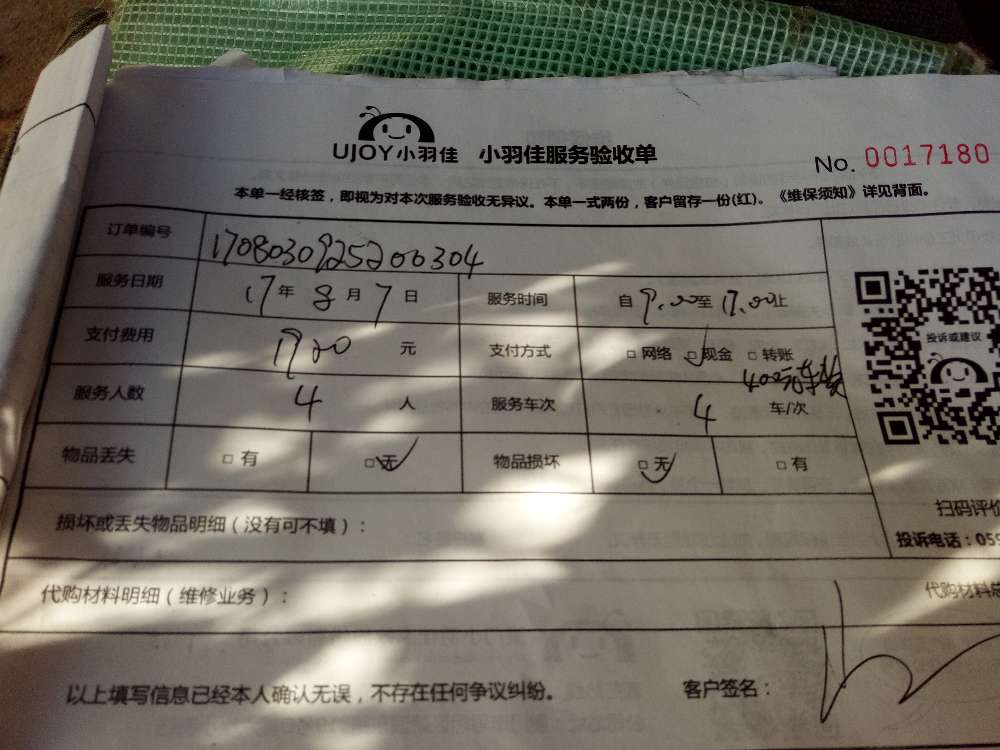 UJOY小羽佳 小羽佳服务验收单
No. 0017180
本单一经核签，即视为对本次服务验收无异议。本单一式两份，客户留存一份(红)。《维保须知》详见背面。
订单编号 170803092520​0304
服务日期 17年8月7日 服务时间 自9.00至17.00止
投诉或建议
支付费用 1920元 支付方式 □网络 □现金 □转账
400元车费
服务人数 4人 服务车次 4车/次
物品丢失 □有 □无 物品损坏 □无 □有
扫码评价
损坏或丢失物品明细（没有可不填）：
投诉电话：059
代购材料明细（维修业务）： 代购材料总
以上填写信息已经本人确认无误，不存在任何争议纠纷。 客户签名：